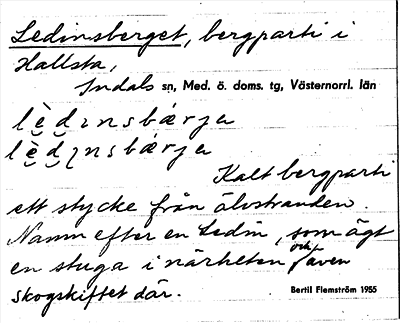 Ledinsberget, bergparti i
Hallsta,
Indals sn, Med. ö. doms. tg, Västernorrl. län
lè̬d̬ɪnsbǽrja
lè̬d̬ɪnsbǽrja
Kalt bergparti
ett stycke från älvstranden.
Namn efter en Ledin, som ägt
en stuga i närheten och även
skogskiftet där.
Bertil Flemström 1955